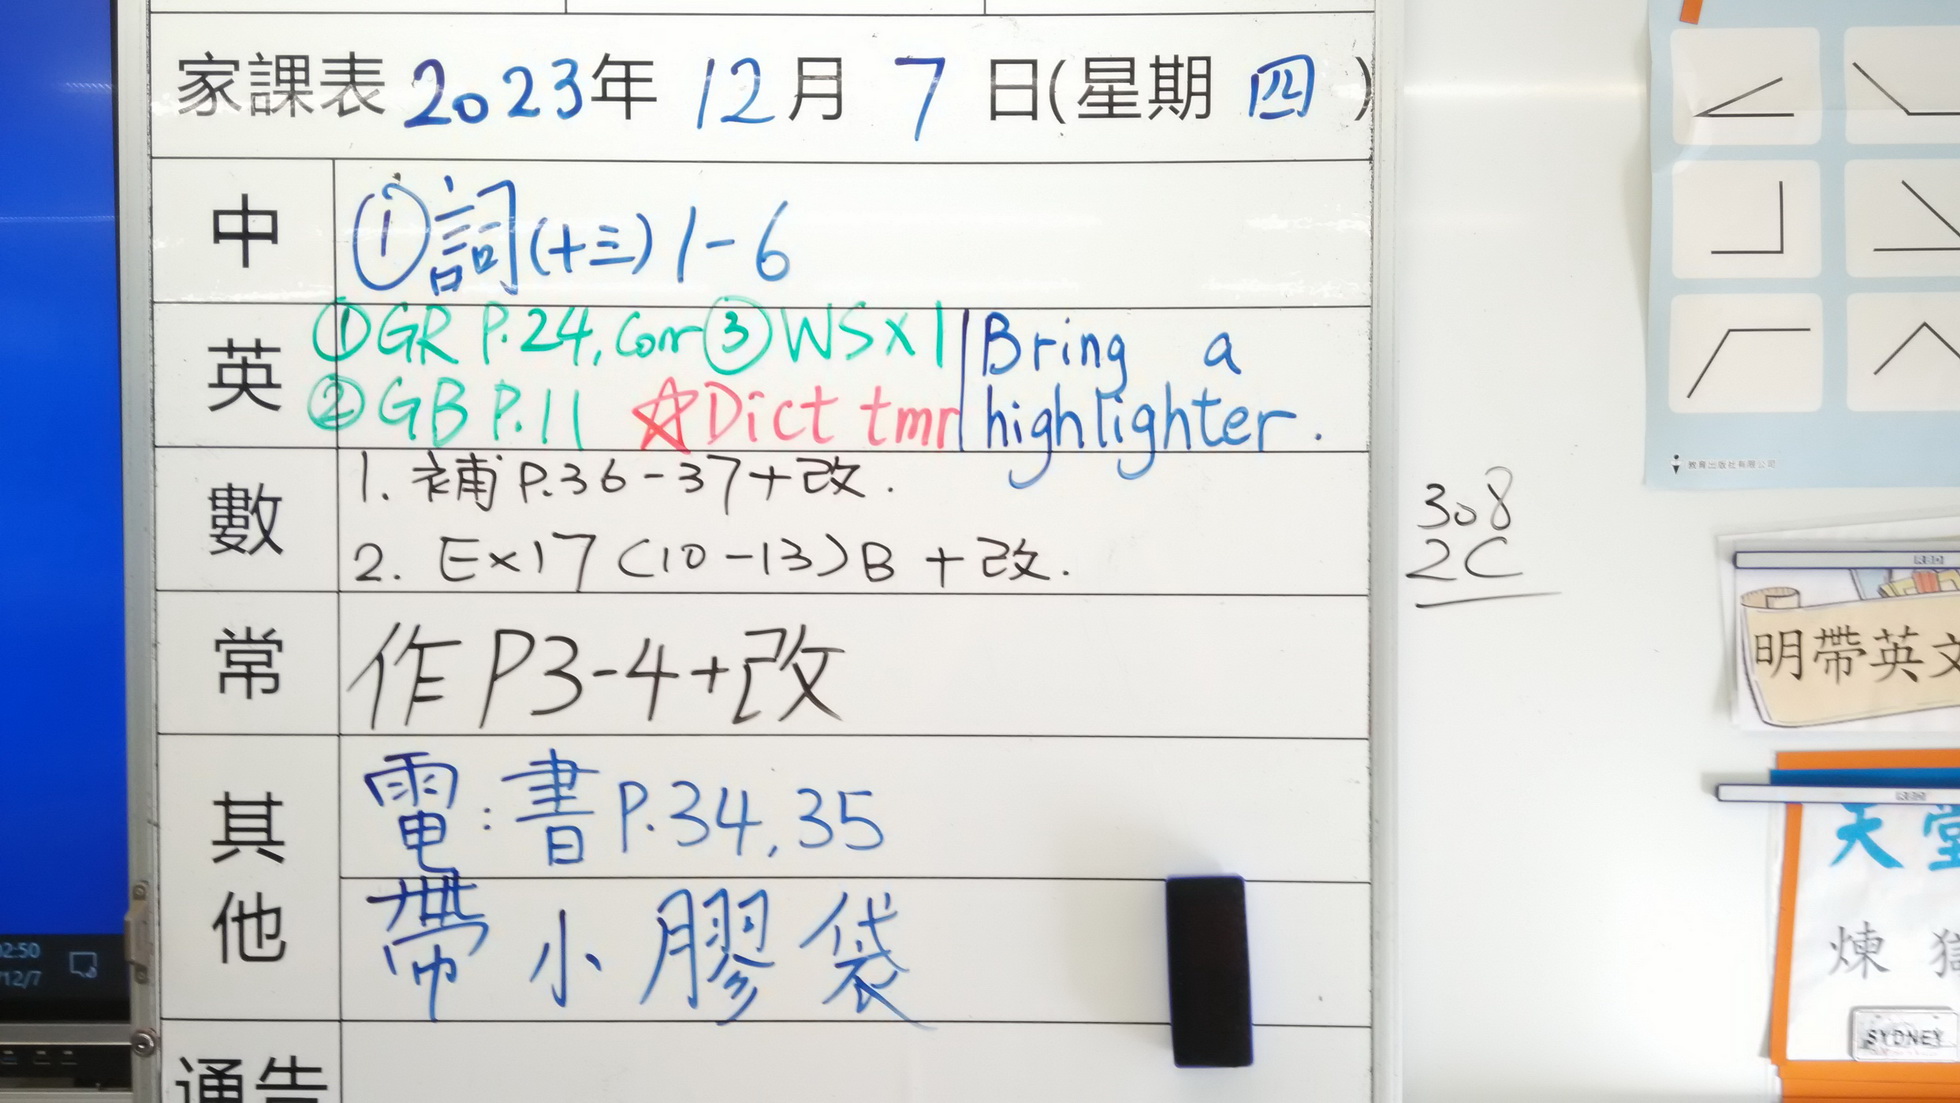 家課表 2023年 12月 7 日(星期 四 )
中 ①詞(十三) 1-6
英 ①GR P.24, Corr ③WS×1
②GB P.11 ☆Dict tmr
Bring a
highlighter.
數 1. 補 P.36-37+改.
2. Ex17 (10-13)B +改.
常 作 P3-4+改
其他 電:書 P.34, 35
帶 小 膠 袋
通告
308
2C
教育出版社有限公司
明帶英文
天堂
煉
SYDNEY
2:50
12/7